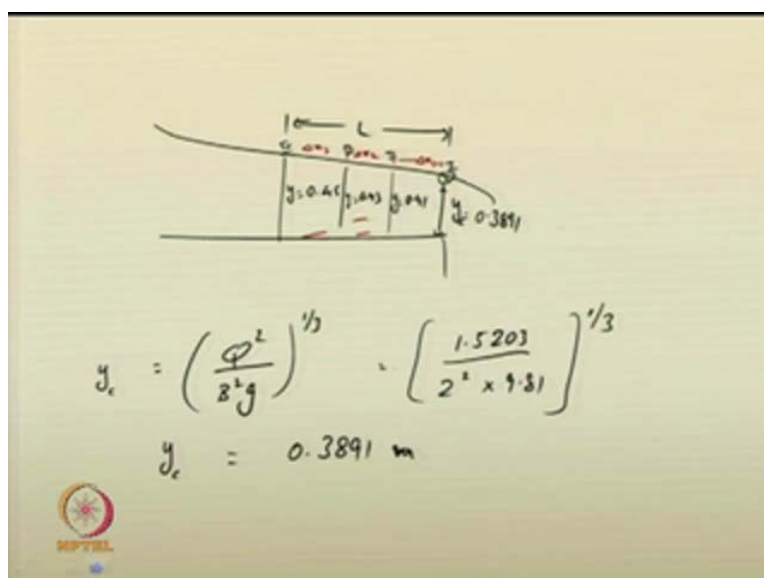 L
y = 0.45
y = 0.43
y = 0.41
y_c = 0.3891
y_c = (Q² / B² g)^1/3 = [1.5203 / 2² × 9.81]^1/3
y_c = 0.3891 m
NPTEL